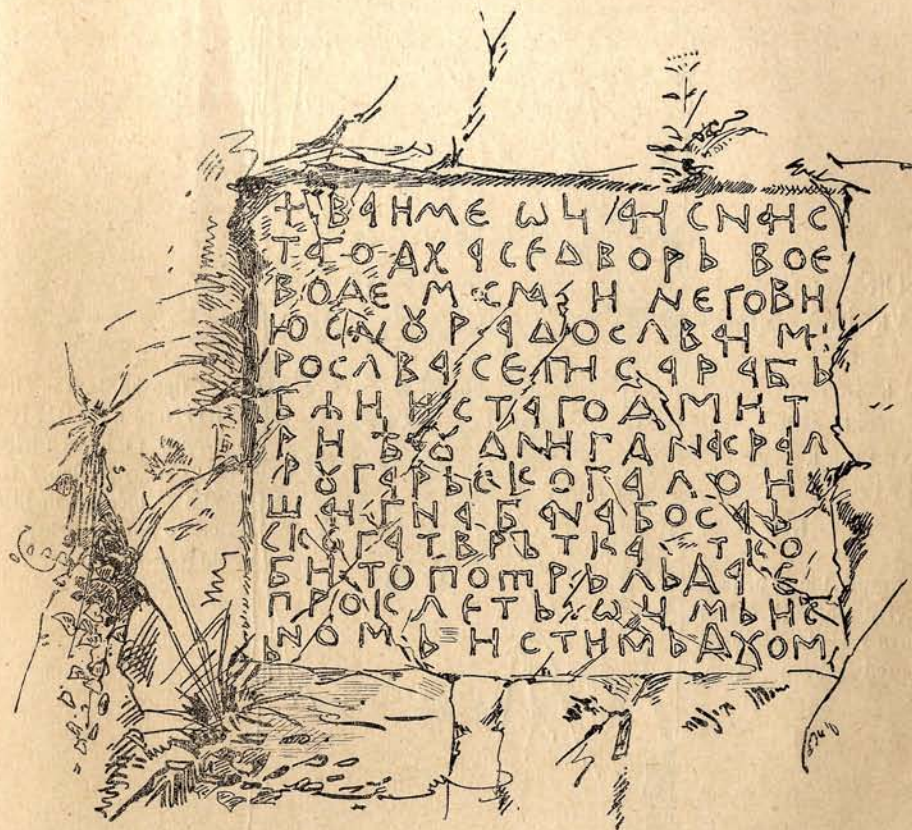 + ВАИМЕ ѠЦАИ СНАИС
ТАГО ДХ АСЕДВОРЬ ВОЕ
ВОДЕ МАСМА И НЕГОВИ
Ю СНꙊ РАДОСЛВАИ МИ
РОСЛВАСЕПИСАРАБЬ
БЖИИСТАГОДМИТ
РИ ВꙊ ДНИ ГАНАКРАЛ
РꙊГАРЬСКОГА ЛОИ
ША И ГНА БАНА БОСАЬ
СКОГА ТВРЬТКА ТКО
БИТОПОТРЬЛЬДАЕ
ПРОКЛЕТЬ ѠЦМЬИС
ЬНОМЬИСТИМЬДХОМ